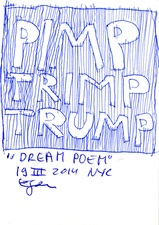 PIMP
TRIMP
TRUMP
"DREAM POEM"
19 III 2014 NYC